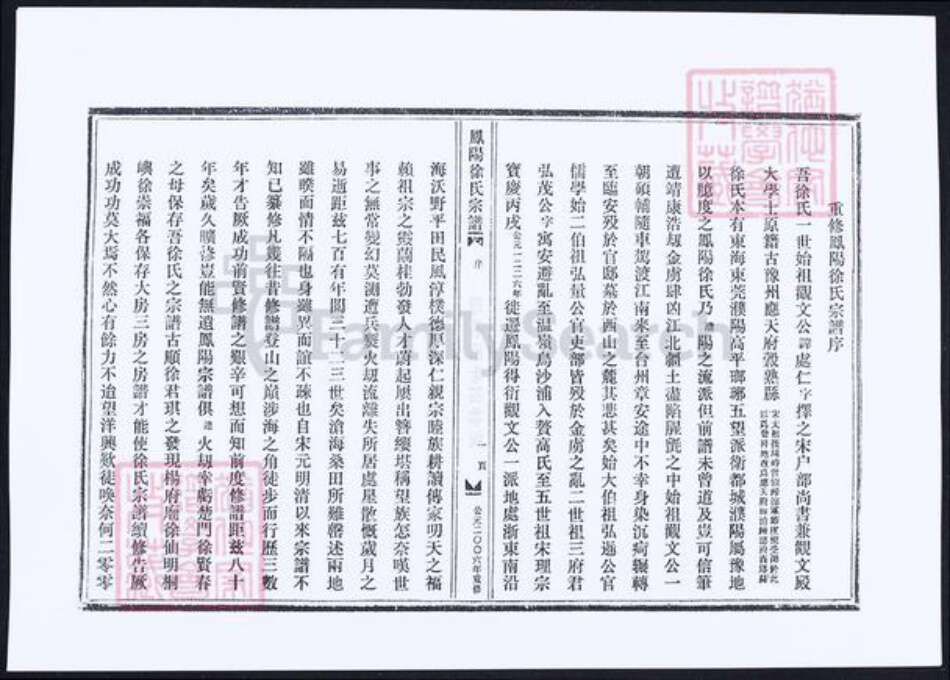 重修鳳陽徐氏宗譜序
吾徐氏一世始祖觀文公諱處仁字擇之宋戶部尚書兼觀文殿
大學士原籍古豫州應天府穀熟縣
徐氏本有東海東莞濮陽高平瑯琊五望派衛都城濮陽屬豫地
以臆度之鳳陽徐氏乃濮陽之流派但前譜未曾道及豈可信筆
遭靖康浩劫金虜肆凶江北疆土盡陷腥氈之中始祖觀文公一
朝碩輔隨車駕渡江南來至台州章安途中不幸身染沉疴輾轉
至臨安歿於官邸墓於西山之麓其悲甚矣始大伯祖弘邁公官
儒學始二伯祖弘量公官吏部皆歿於金虜之亂二世祖三府君
弘茂公字寓安避亂至溫嶺鳥沙浦入贅高氏至五世祖宋理宗
寶慶丙戌公元一二二六年徙遷鳳陽得衍觀文公一派地處浙東南沿
鳳陽徐氏宗譜 序 一頁 公元二〇〇六年重修
海沃野平田民風淳樸德厚深仁親宗睦族耕讀傳家叨天之福
賴祖宗之靈蘭桂勃發人才蔚起屢出簪纓堪稱望族怎奈嘆世
事之無常變幻莫測遭兵燹火劫流離失所居處星散慨歲月之
易逝距茲七百有年閱三十二三世矣滄海桑田所難罄述兩地
雖暌而情不隔也身雖異而誼不疎也自宋元明清以來宗譜不
知已纂修凡幾往昔修譜登山之巔涉海之角徒步而行歷三數
年才告厥成功前賢修譜之艱辛可想而知前度修譜距茲八十
年矣歲久曠修豈能無遺鳳陽宗譜俱遭火劫幸虧楚門徐賢春
之母保存吾徐氏之宗譜古順徐君琪之發現楊府廟徐仙明桐
嶼徐崇福各保存大房三房之房譜才能使徐氏宗譜續修告厥
成功功莫大焉不然心有餘力不迨望洋興歎徒喚奈何二零零
FamilySearch